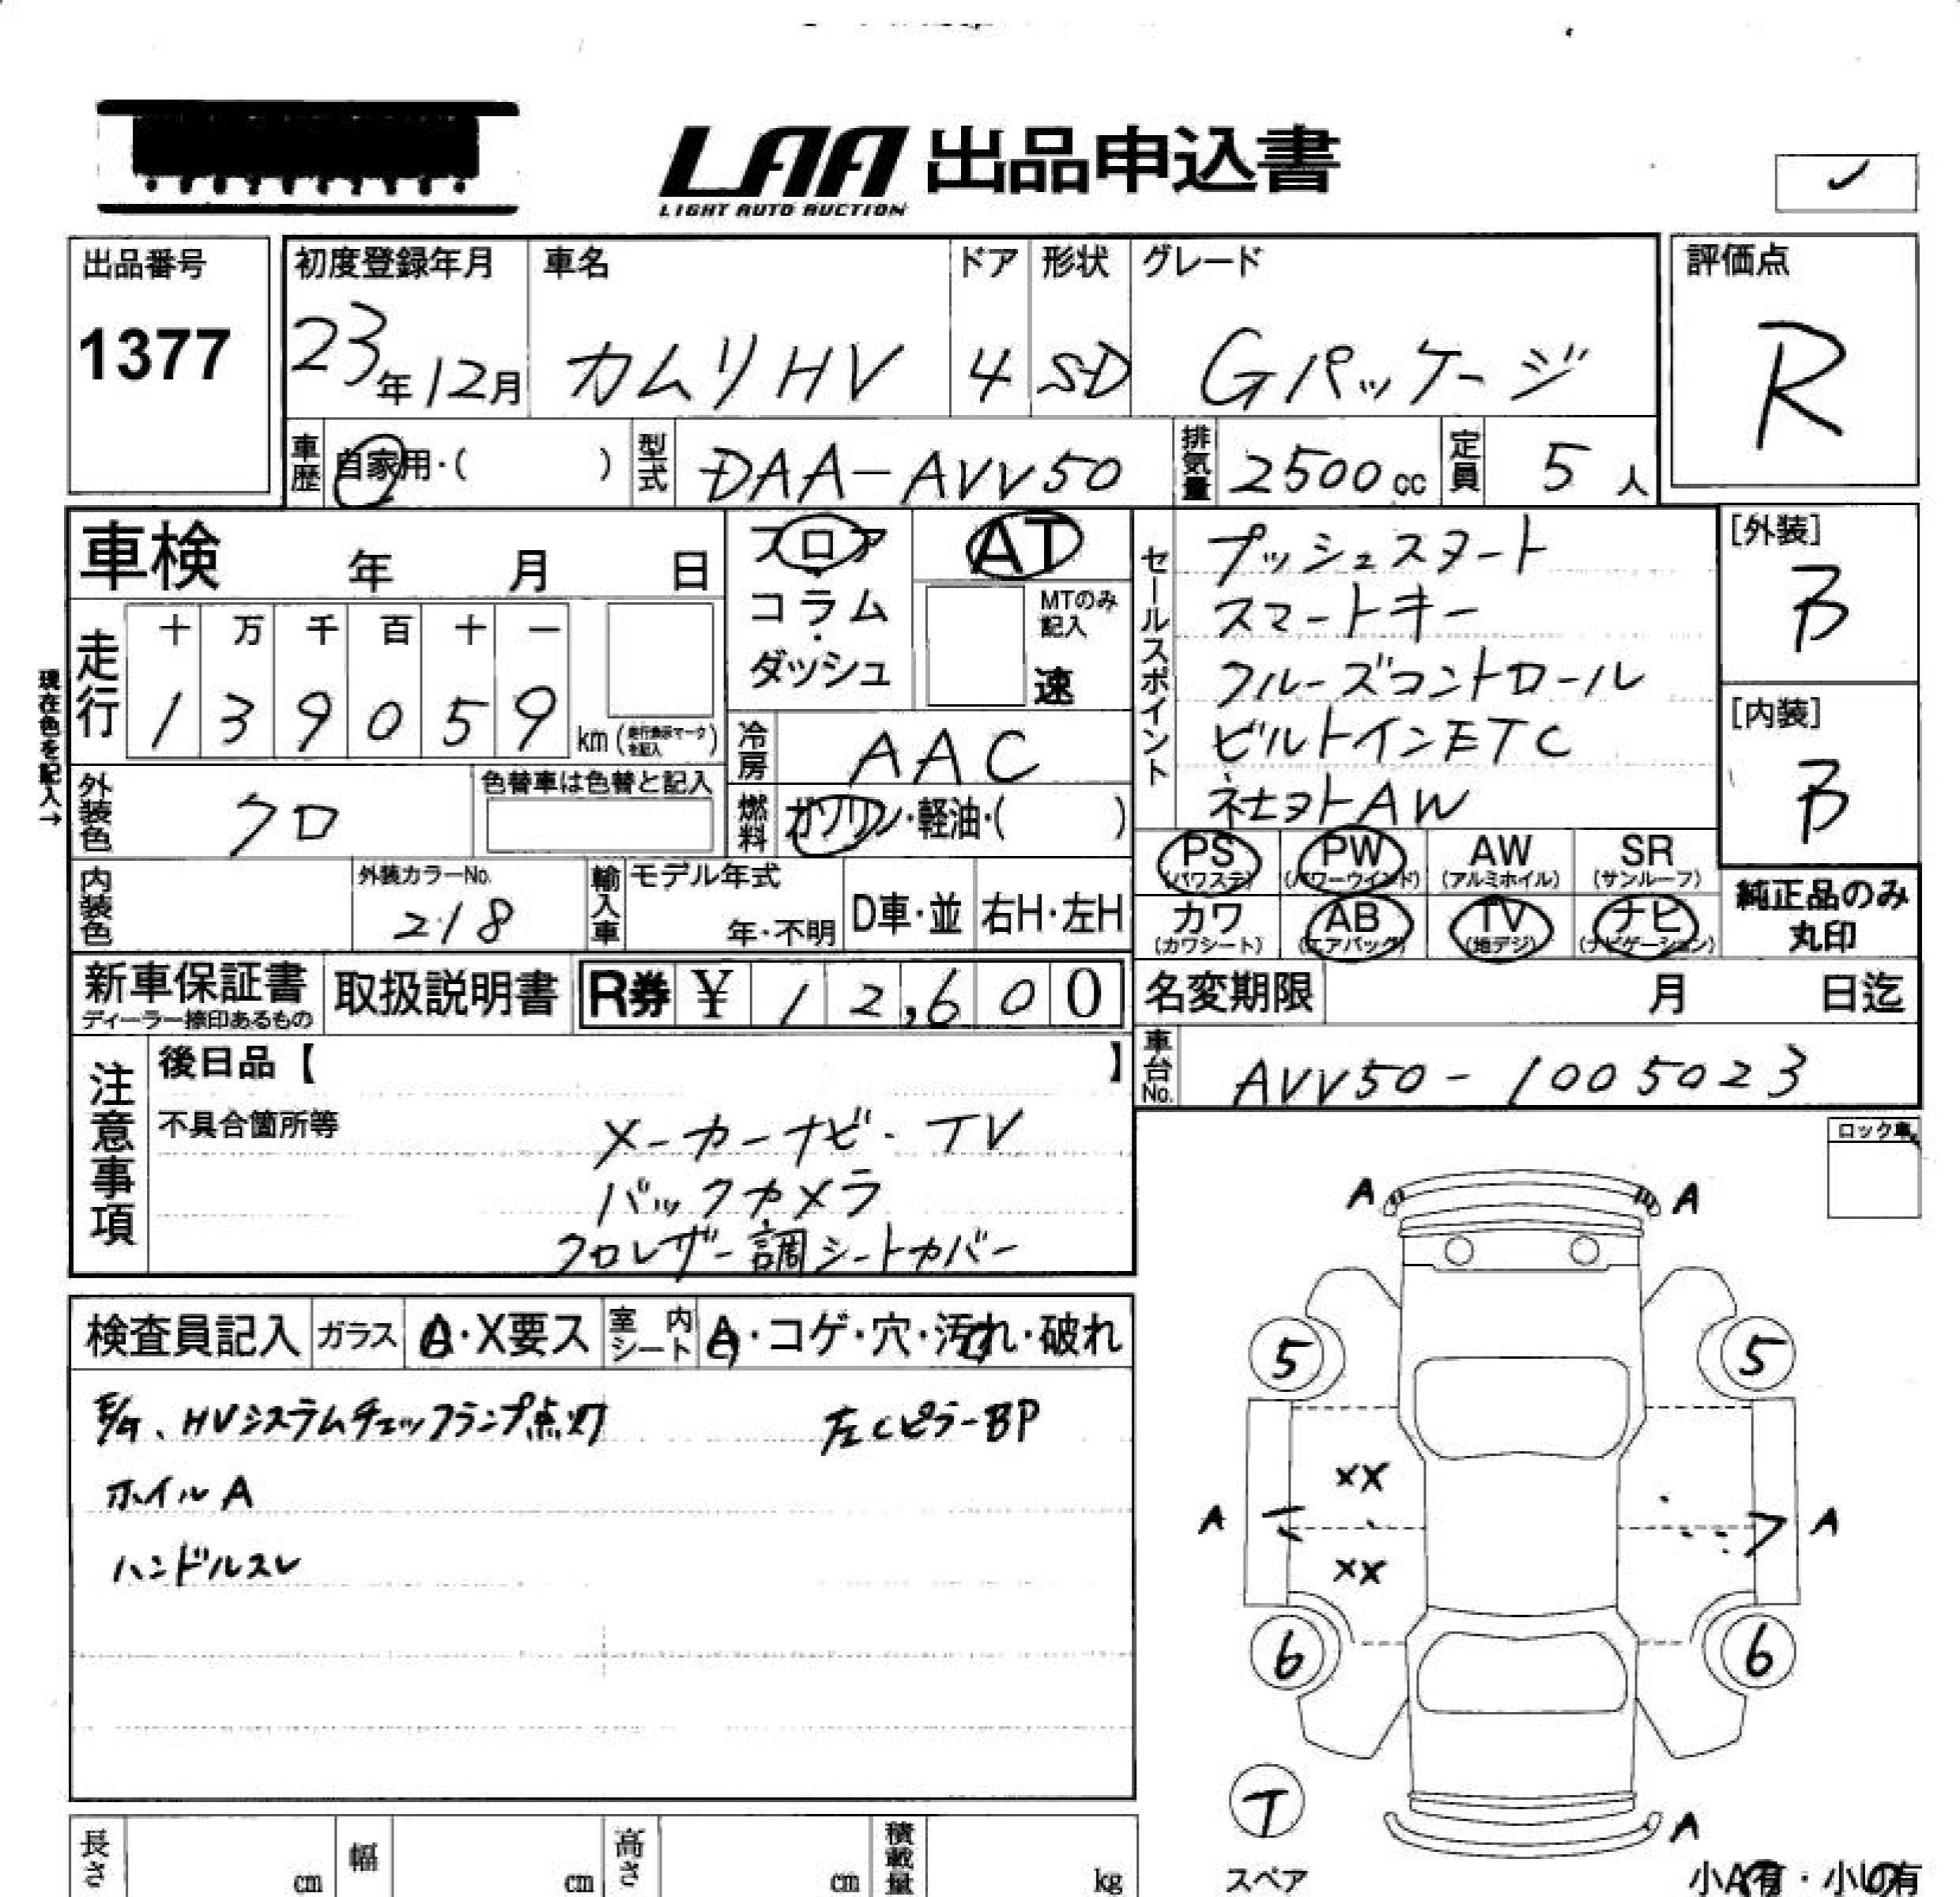 LAA 出品申込書
LIGHT AUTO AUCTION
出品番号
1377
初度登録年月
23年12月
車名
カムリHV
ドア
4
形状
SD
グレード
Gパッケージ
評価点
R
車歴
自家用・( )
型式
DAA-AVV50
排気量
2500cc
定員
5人
車検 年 月 日
フロア・コラム・ダッシュ
AT
MTのみ記入
速
セールスポイント
プッシュスタート
スマートキー
クルーズコントロール
ビルトインETC
社ヨトAW
[外装]
B
[内装]
B
現在色を記入→
走行
十 万 千 百 十 一
1 3 9 0 5 9 km(走行表示マークを記入)
冷房
AAC
外装色
クロ
色替車は色替と記入
燃料
ガソリン・軽油・( )
PS (パワステ)
PW (パワーウインド)
AW (アルミホイル)
SR (サンルーフ)
カワ (カワシート)
AB (エアバッグ)
TV (地デジ)
ナビ (ナビゲーション)
純正品のみ
丸印
内装色
外装カラーNo.
218
輸入車
モデル年式
年・不明
D車・並
右H・左H
新車保証書
ディーラー捺印あるもの
取扱説明書
R券 ¥ 12,600
名変期限 月 日迄
車台No.
AVV50-1005023
注意事項
後日品【 】
不具合箇所等
メーカーナビ・TV
バックカメラ
クロレザー調シートカバー
ロック車
検査員記入
ガラス
A・X要ス
室内シート
A・コゲ・穴・汚れ・破れ
HVシステムチェックランプ点灯
左CピラーBP
ホイルA
ハンドルスレ
A A
5 5
XX
A A
XX
6 6
T
スペア
A
小A有・小U有
長さ cm
幅 cm
高さ cm
積載量 kg